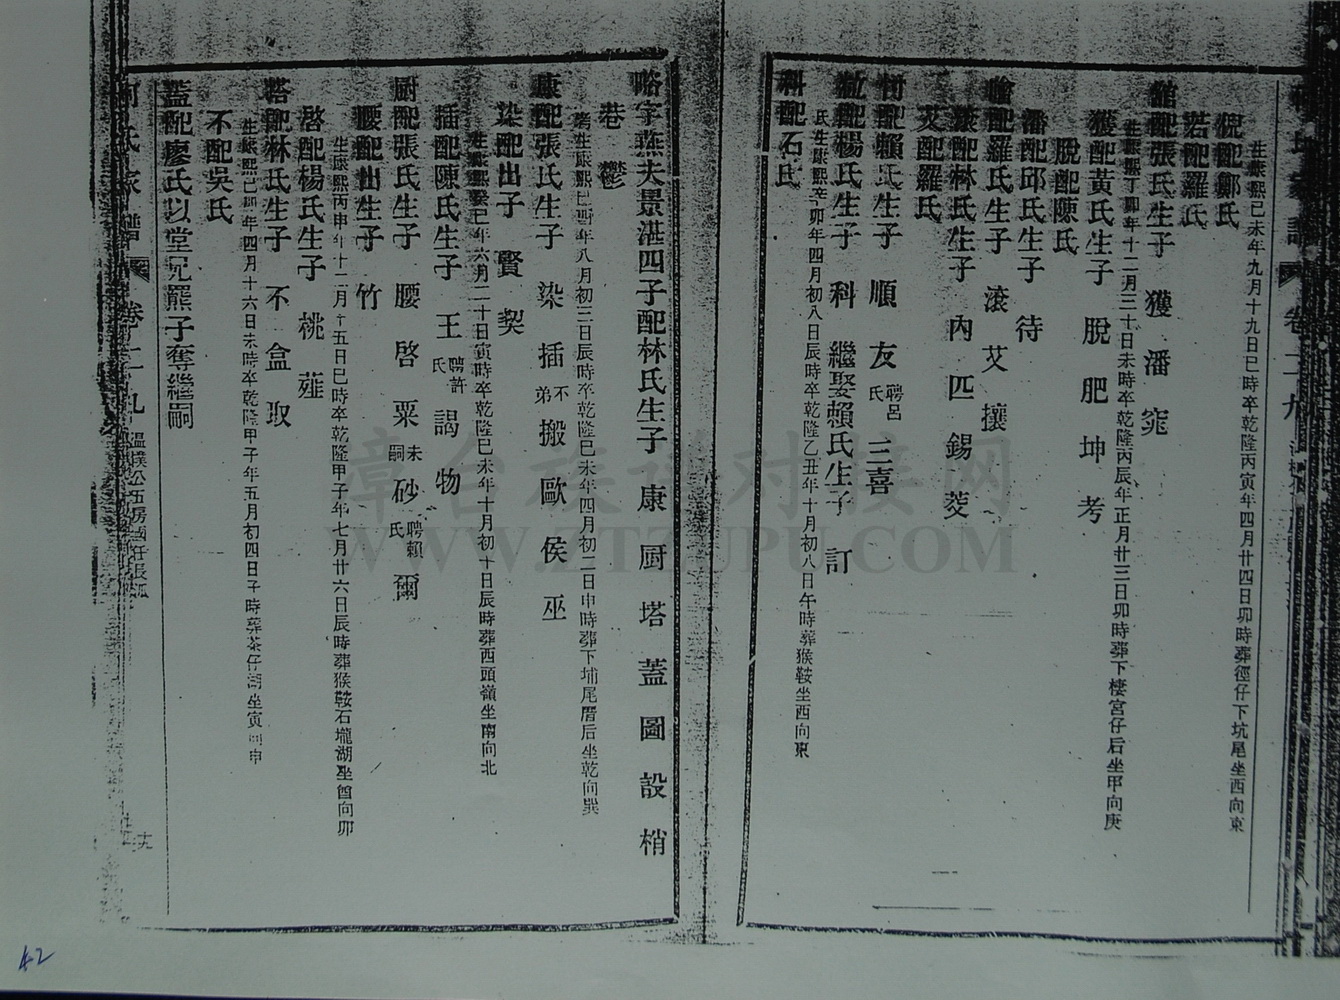 生康熙己未年九月十九日巳時卒乾隆丙寅年四月廿四日卯時葬徑仔下坑尾坐西向東
猊配鄭氏
若配羅氏
館配張氏生子 獲 潘 窕
生康熙丁卯年十二月三十日未時卒乾隆丙辰年正月廿三日卯時葬下樓宮仔后坐甲向庚
獲配黃氏生子 脫 肥 坤 考
脫配陳氏
潘配邱氏生子 待
配羅氏生子 滚 艾 攘
滚配林氏生子 內 匹 錫 菱
艾配羅氏
配賴氏生子 順 友 聘呂氏 三喜
配楊氏生子 科 繼娶賴氏生子 訂
氏生康熙辛卯年四月初八日辰時卒乾隆乙丑年十月初八日午時葬猴鞍坐西向東
科配石氏
略字燕夫景湛四子配林氏生子 康 厨 塔 蓋 圖 設 梢
巷 鬱
生康熙己酉年八月初三日辰時卒乾隆己未年四月初二日申時葬下埔尾厝后坐乾向巽
康配張氏生子 染 插 不弟 搬 歐 侯 巫
染配出子 賢 契
生康熙癸巳年六月二十日寅時卒乾隆己未年十月初十日辰時葬西頭嶺坐南向北
插配陳氏生子 王 聘許氏 謁 物
厨配張氏生子 腰 啓 粟 未嗣 砂 聘賴氏 爾
腰配出子 竹
生康熙丙申年十二月十五日巳時卒乾隆甲子年七月廿六日辰時葬猴鞍石壠湖坐酉向卯
啓配楊氏生子 桃 薤
塔配林氏生子 不 盒 取
生康熙己卯年四月十六日未時卒乾隆甲子年五月初四日子時葬茶仔湖坐寅向申
不配吳氏
蓋配廖氏以堂兄羆子奪繼嗣
氏家譜 卷二九 溫樸公五房
十九
漳台族谱对接网
WWW.ZTZUPU.COM
42